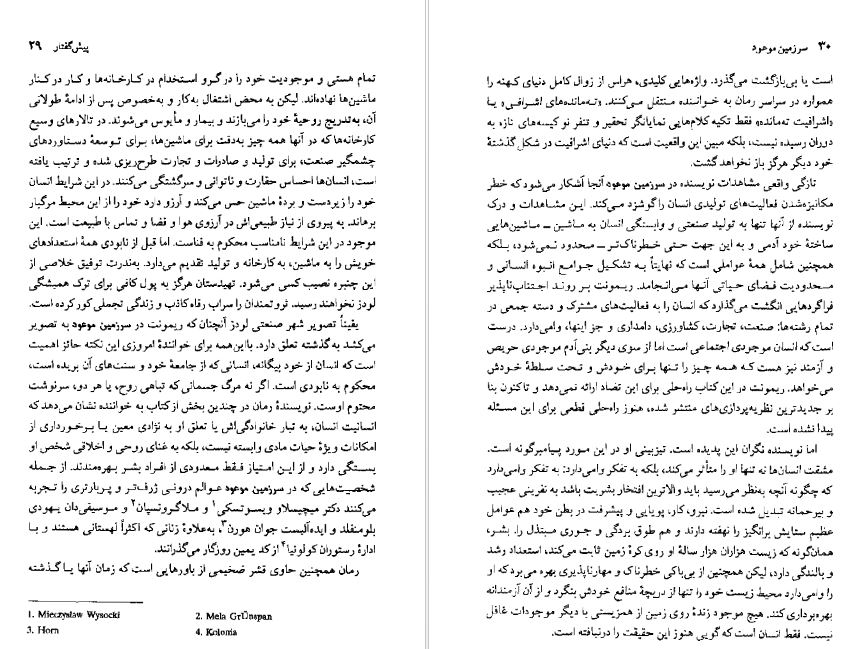 پیش‌گفتار ۲۹
تمام هستی و موجودیت خود را در گرو استخدام در کارخانه‌ها و کار در کنار
ماشین‌ها نهاده‌اند. لیکن به محض اشتغال به‌کار و به‌خصوص پس از ادامهٔ طولانی
آن، به‌تدریج روحیهٔ خود را می‌بازند و بیمار و مأیوس می‌شوند. در تالارهای وسیع
کارخانه‌ها که در آنها همه چیز به‌دقت برای ماشین‌ها، برای توسعهٔ دستاوردهای
چشمگیر صنعت، برای تولید و صادرات و تجارت طرح‌ریزی شده و ترتیب یافته
است، انسان‌ها احساس حقارت و ناتوانی و سرگشتگی می‌کنند. در این شرایط انسان
خود را زیردست و بردهٔ ماشین حس می‌کند و آرزو دارد خود را از این محیط مرگبار
برهاند. به پیروی از نیاز طبیعی‌اش در آرزوی هوا و فضا و تماس با طبیعت است. این
موجود در این شرایط نامناسب محکوم به فناست. اما قبل از نابودی همهٔ استعدادهای
خویش را به ماشین، به‌کارخانه و تولید تقدیم می‌دارد. به‌ندرت توفیق خلاصی از
این چنبره نصیب کسی می‌شود. تهیدستان هرگز به پول کافی برای ترک همیشگی
لودز نخواهند رسید. ثروتمندان را سراب رفاه کاذب و زندگی تجملی کور کرده است.
یقیناً تصویر شهر صنعتی لودز آنچنان که ریمونت در سرزمین موعود به تصویر
می‌کشد به گذشته تعلق دارد. بااین‌همه برای خوانندهٔ امروزی این نکته حائز اهمیت
است که انسان از خود بیگانه، انسانی که از جامعهٔ خود و سنت‌های آن بریده است،
محکوم به نابودی است. اگر نه مرگ جسمانی که تباهی روح، یا هر دو، سرنوشت
محتوم اوست. نویسندهٔ رمان در چندین بخش از کتاب به خواننده نشان می‌دهد که
انسانیت انسان، به تبار خانوادگی‌اش یا تعلق او به نژادی معین یا بـرخورداری از
امکانات ویژهٔ حیات مادی وابسته نیست، بلکه به غنای روحی و اخلاقی شخص او
بستگی دارد و از این امتیاز فقط معدودی از افراد بشر بهره‌مندند. از جمله
شخصیت‌هایی که در سرزمین موعود عوالم درونی ژرف‌تر و پربارتری را تجربه
می‌کنند دکتر میچیسلاو ویسوتسکی۱ و ملاگرونسپان۲ و موسیقی‌دان یهودی
بلومنفلد و ایده‌آلیست جوان هورن۳، به‌علاوهٔ زنانی که اکثراً لهستانی هستند و با
ادارهٔ رستوران کولونیا۴ از کد یمین روزگار می‌گذرانند.
رمان همچنین حاوی قشر ضخیمی از باورهایی است که زمان آنها یا گذشته
1. Mieczysław Wysocki 2. Mela GrÜnspan
3. Horn 4. Kolonia
۳۰ سرزمین موعود
است یا بی‌بازگشت می‌گذرد. واژه‌هایی کلیدی، هراس از زوال کامل دنیای کهنه را
همواره در سراسر رمان به خواننده منتقل می‌کنند. «ته‌مانده‌های اشرافی» یـا
«اشرافیت ته‌مانده» فقط تکیه کلام‌هایی نمایانگر تحقیر و تنفر نو کیسه‌های تازه به
دوران رسیده نیست، بلکه مبین این واقعیت است که دنیای اشرافیت در شکل گذشتهٔ
خود دیگر هرگز باز نخواهد گشت.
تازگی واقعی مشاهدات نویسنده در سرزمین موعود آنجا آشکار می‌شود که خطر
مکانیزه‌شدن فعالیت‌های تولیدی انسان را گوشزد می‌کند. این مشاهدات و درک
نویسنده از آنها تنها به تولید صنعتی و وابستگی انسان به ماشین ـ ماشین‌هایی
ساختهٔ خود آدمی و به این جهت حتی خطرناک‌تر ـ محدود نمی‌شود، بلکه
همچنین شامل همهٔ عواملی است که نهایتاً به تشکیل جوامع انبوه انسانی و
محدودیت فضای حیاتی آنها می‌انجامد. ریمونت بر روند اجتناب‌ناپذیر
فراگردهایی انگشت می‌گذارد که انسان را به فعالیت‌های مشترک و دسته جمعی در
تمام رشته‌ها: صنعت، تجارت، کشاورزی، دامداری و جز اینها، وامی‌دارد. درست
است که انسان موجودی اجتماعی است اما از سوی دیگر بنی‌آدم موجودی حریص
و آزمند نیز هست که همه چیز را تنها برای خودش و تحت سلطهٔ خودش
می‌خواهد. ریمونت در این کتاب راه‌حلی برای این تضاد ارائه نمی‌دهد و تاکنون بنا
بر جدیدترین نظریه‌پردازی‌های منتشر شده، هنوز راه‌حلی قطعی برای این مسئله
پیدا نشده است.
اما نویسنده نگران این پدیده است. تیزبینی او در این مورد پیامبرگونه است.
مشقت انسان‌ها نه تنها او را متأثر می‌کند، بلکه به تفکر وامی‌دارد: به تفکر وامی‌دارد
که چگونه آنچه به‌نظر می‌رسید باید والاترین افتخار بشریت باشد به نفرینی عجیب
و بیرحمانه تبدیل شده است. نیرو، کار، پویایی و پیشرفت در بطن خود هم عوامل
عظیم ستایش برانگیز را نهفته دارند و هم طوق بردگی و جوری مبتذل را. بشر،
همان‌گونه که زیست هزاران هزار سالهٔ او روی کرهٔ زمین ثابت می‌کند، استعداد رشد
و بالندگی دارد، لیکن همچنین از بی‌باکی خطرناک و مهارناپذیری بهره می‌برد که او
را وامی‌دارد محیط زیست خود را تنها از دریچهٔ منافع خودش بنگرد و از آن آزمندانه
بهره‌برداری کند. هیچ موجود زندهٔ روی زمین از همزیستی با دیگر موجودات غافل
نیست. فقط انسان است که گویی هنوز این حقیقت را درنیافته است.